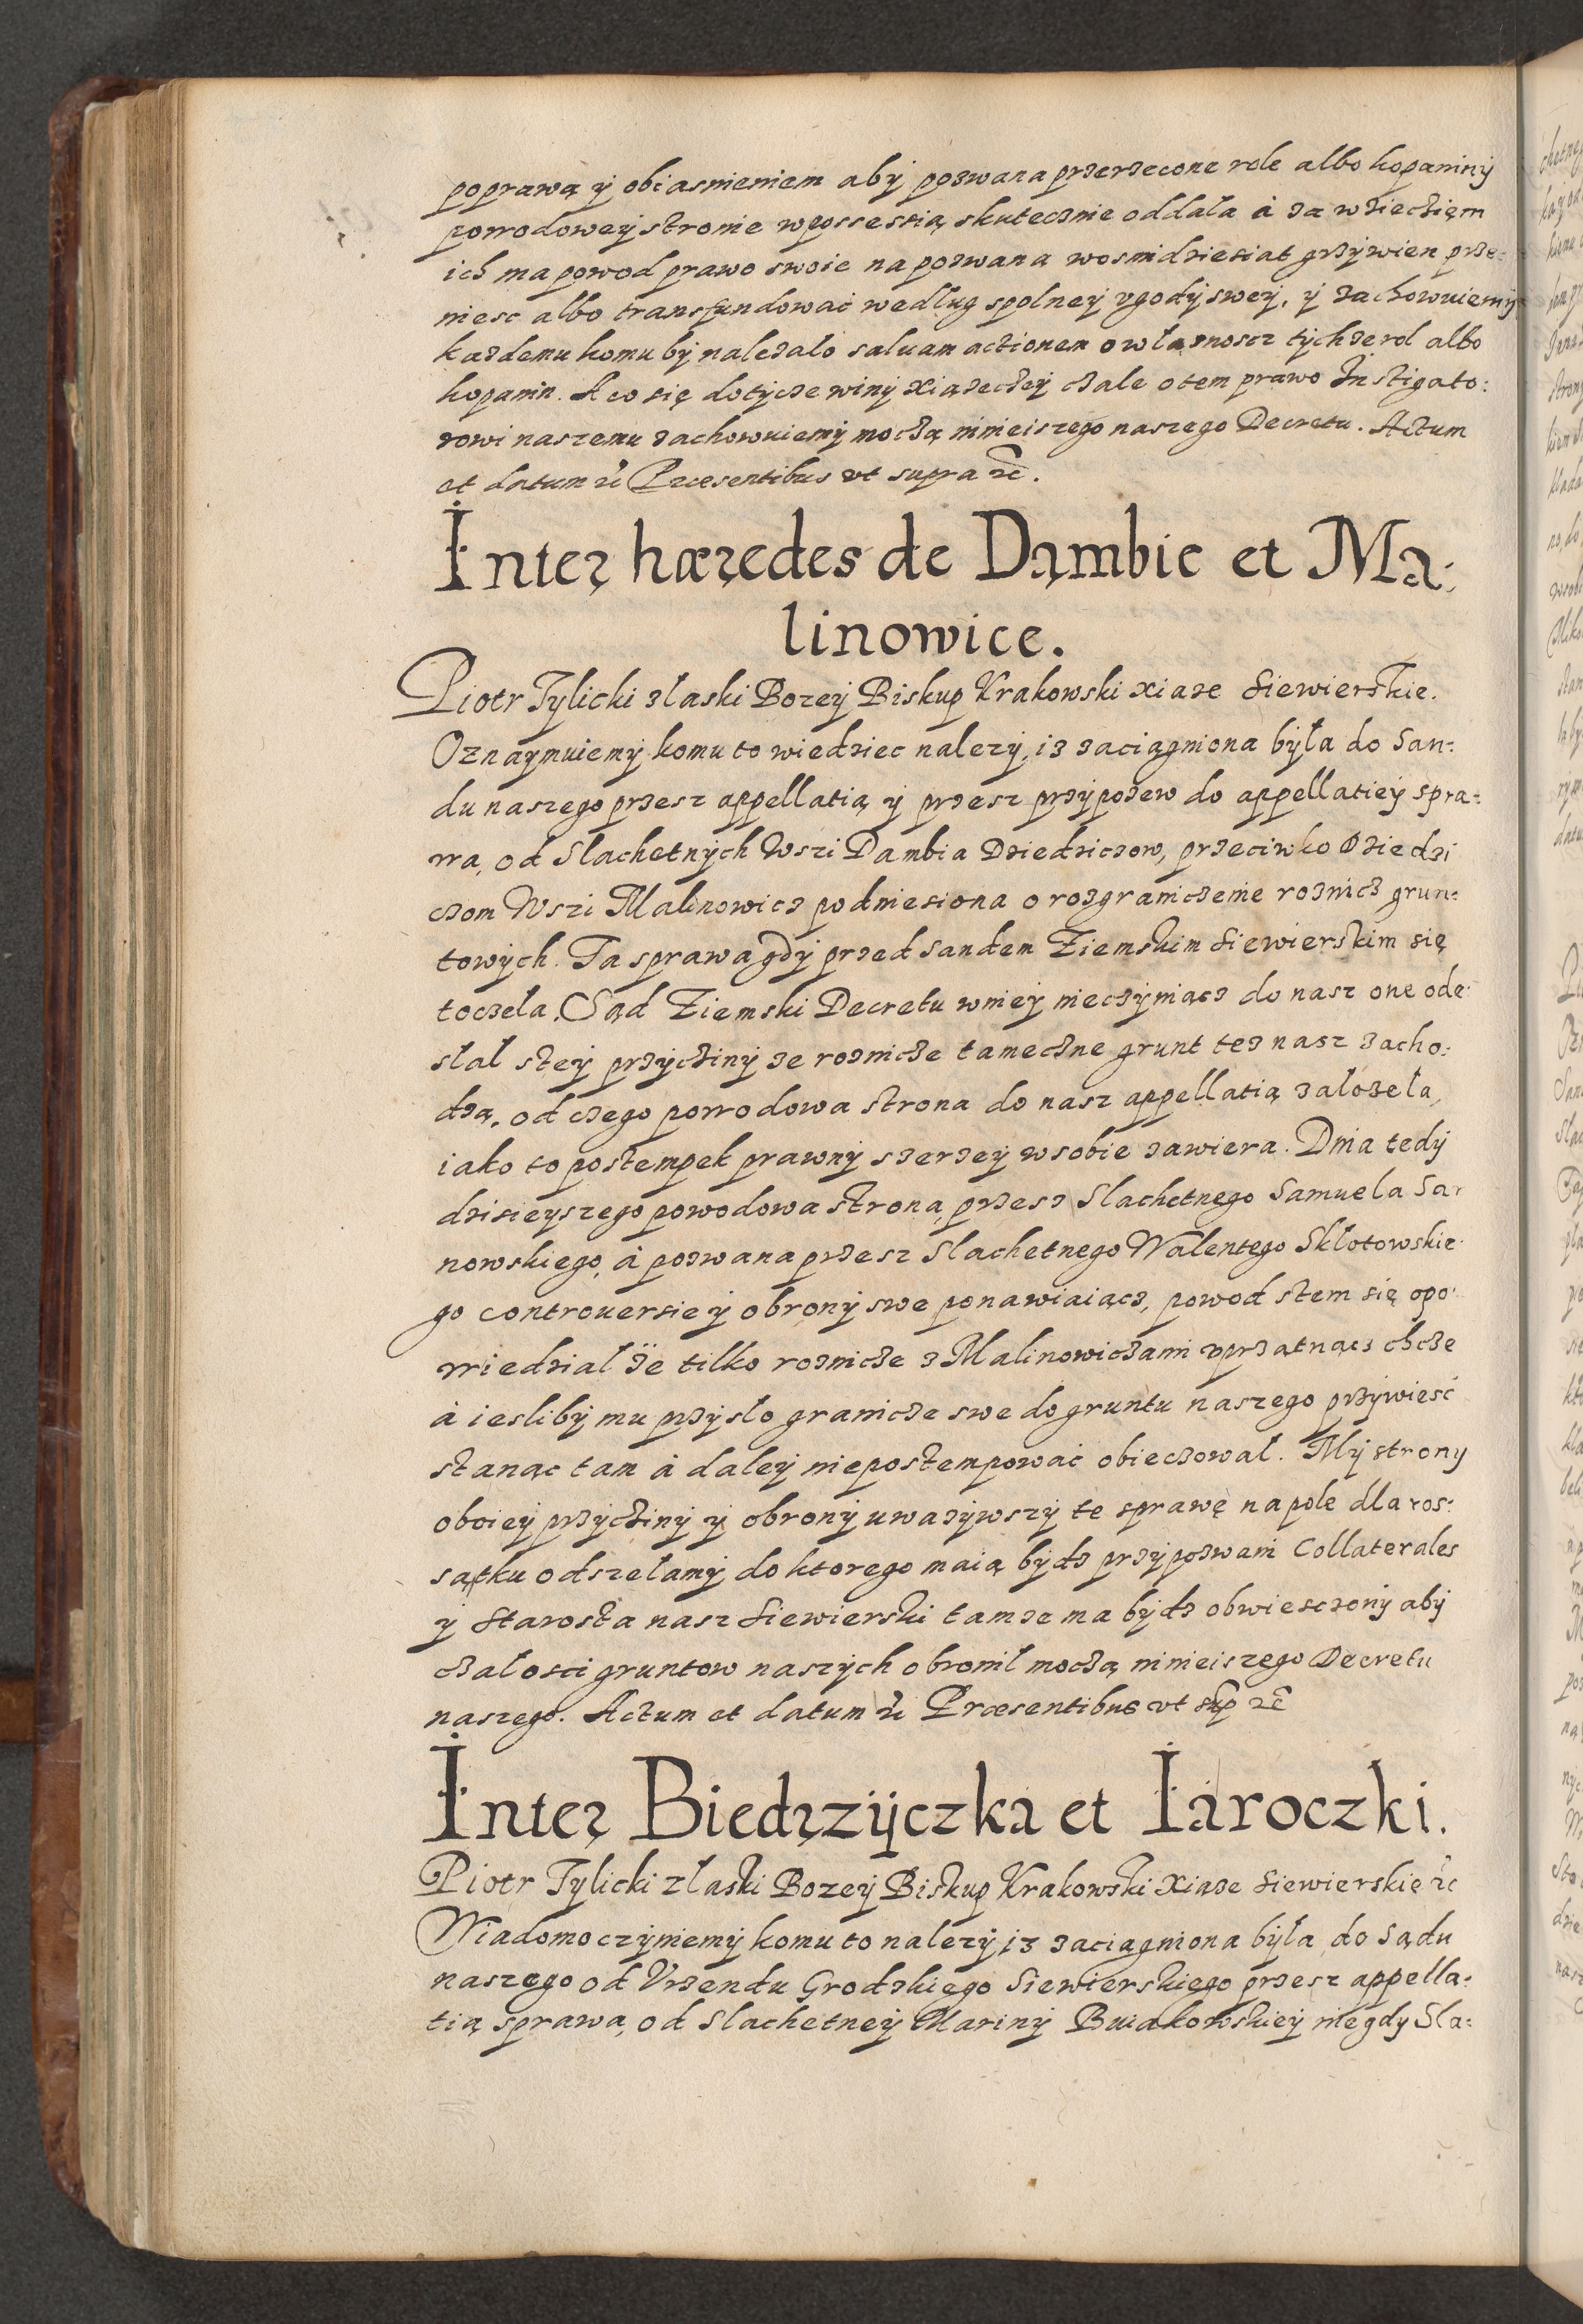 poprawą ÿ obiasnieniem abÿ pozwana przerzecone role albo kopaninÿ
powodoweÿ stronie wpossessią skutecznie oddała à za wzieczięm
ich ma powod prawo swoie na pozwana wosmidziesiat grzÿwien prze:
niesc albo transfundować według spolneÿ vgodÿ sweÿ, ÿ zachowuiemÿ
kazdemu komu bÿ nalezalo saluam actionem o własnoscz tÿchze rol albo
kopanin. A co się dotÿcze winÿ xiązeczeÿ czale o tem prawo Instigato:
rowi naszemu zachowuiemÿ moczą ninieiszego naszego Decretu. Actum
et datum etc Præsentibus vt supra etc.
Inter hæredes de Dąmbie et Ma:
linowice.
Piotr Tÿlicki złaski Bozeÿ Biskup Krakowski xiaze Siewierskie.
Oznaÿmuiemÿ komu to wiedziec nalezÿ, iz zaciągniona bÿła do San:
du naszego przesz appellatią ÿ przesz przÿpozew do appellatieÿ spra:
wa, od Slachetnÿch Wszi Dambia Dziedziczow, przeciwko Dziedzi
czom Wszi Malinowicz podniesiona o rozgraniczenie roznicz grun:
towÿch. Ta sprawa gdÿ przed Sandem Ziemskim Siewierskim się
toczeła, Sąd Ziemski Decretu wnieÿ nieczÿniącz do nasz one ode:
słał steÿ przÿczinÿ ze roznicze tameczne grunt tez nasz zacho:
dzą, od czego powodowa strona do nasz appellatią załozeła,
iako to postempek prawnÿ szerzeÿ wsobie zawiera. Dnia tedÿ
dzisieÿszego powodowa strona, przesz Slachetnego Samuela Sar
nowskiego, à pozwana przesz Slachetnego Walentego Skłotowskie
go controuersie ÿ obronÿ swe ponawiaiącz, powod stem się opo:
wiedział ze tilko roznicze z Malinowiczami vprzątnącz chcze
à ieslibÿ mu przÿsło granicze swe do gruntu naszego przÿwieść
stanąc tam à daleÿ niepostempować obieczował. Mÿ stronÿ
oboieÿ przÿczinÿ ÿ obronÿ uwazÿwszÿ te sprawę na pole dla ros:
sątku odszełamÿ do ktorego maią bÿdz przÿpozwani Collaterales
ÿ Starosta nasz Siewierski tamze ma bÿdz obwiesczonÿ abÿ
czałosci gruntow naszÿch obronił moczą ninieiszego Decretu
naszego. Actum et datum etc Præsentibus vt sup etc
Inter Biedrzÿczka et Iaroczki.
Piotr Tÿlicki złaski Bozeÿ Biskup Krakowski Xiaze Siewierskię etc
Wiadomo czÿniemÿ komu to nalezÿ, iz zaciągniona bÿła do Sądu
naszego od Vrzendu Grodzkiego Siewierskiego przesz appella:
tią sprawa, od Slachetneÿ Marinÿ Buiakowskieÿ niegdy Sla: